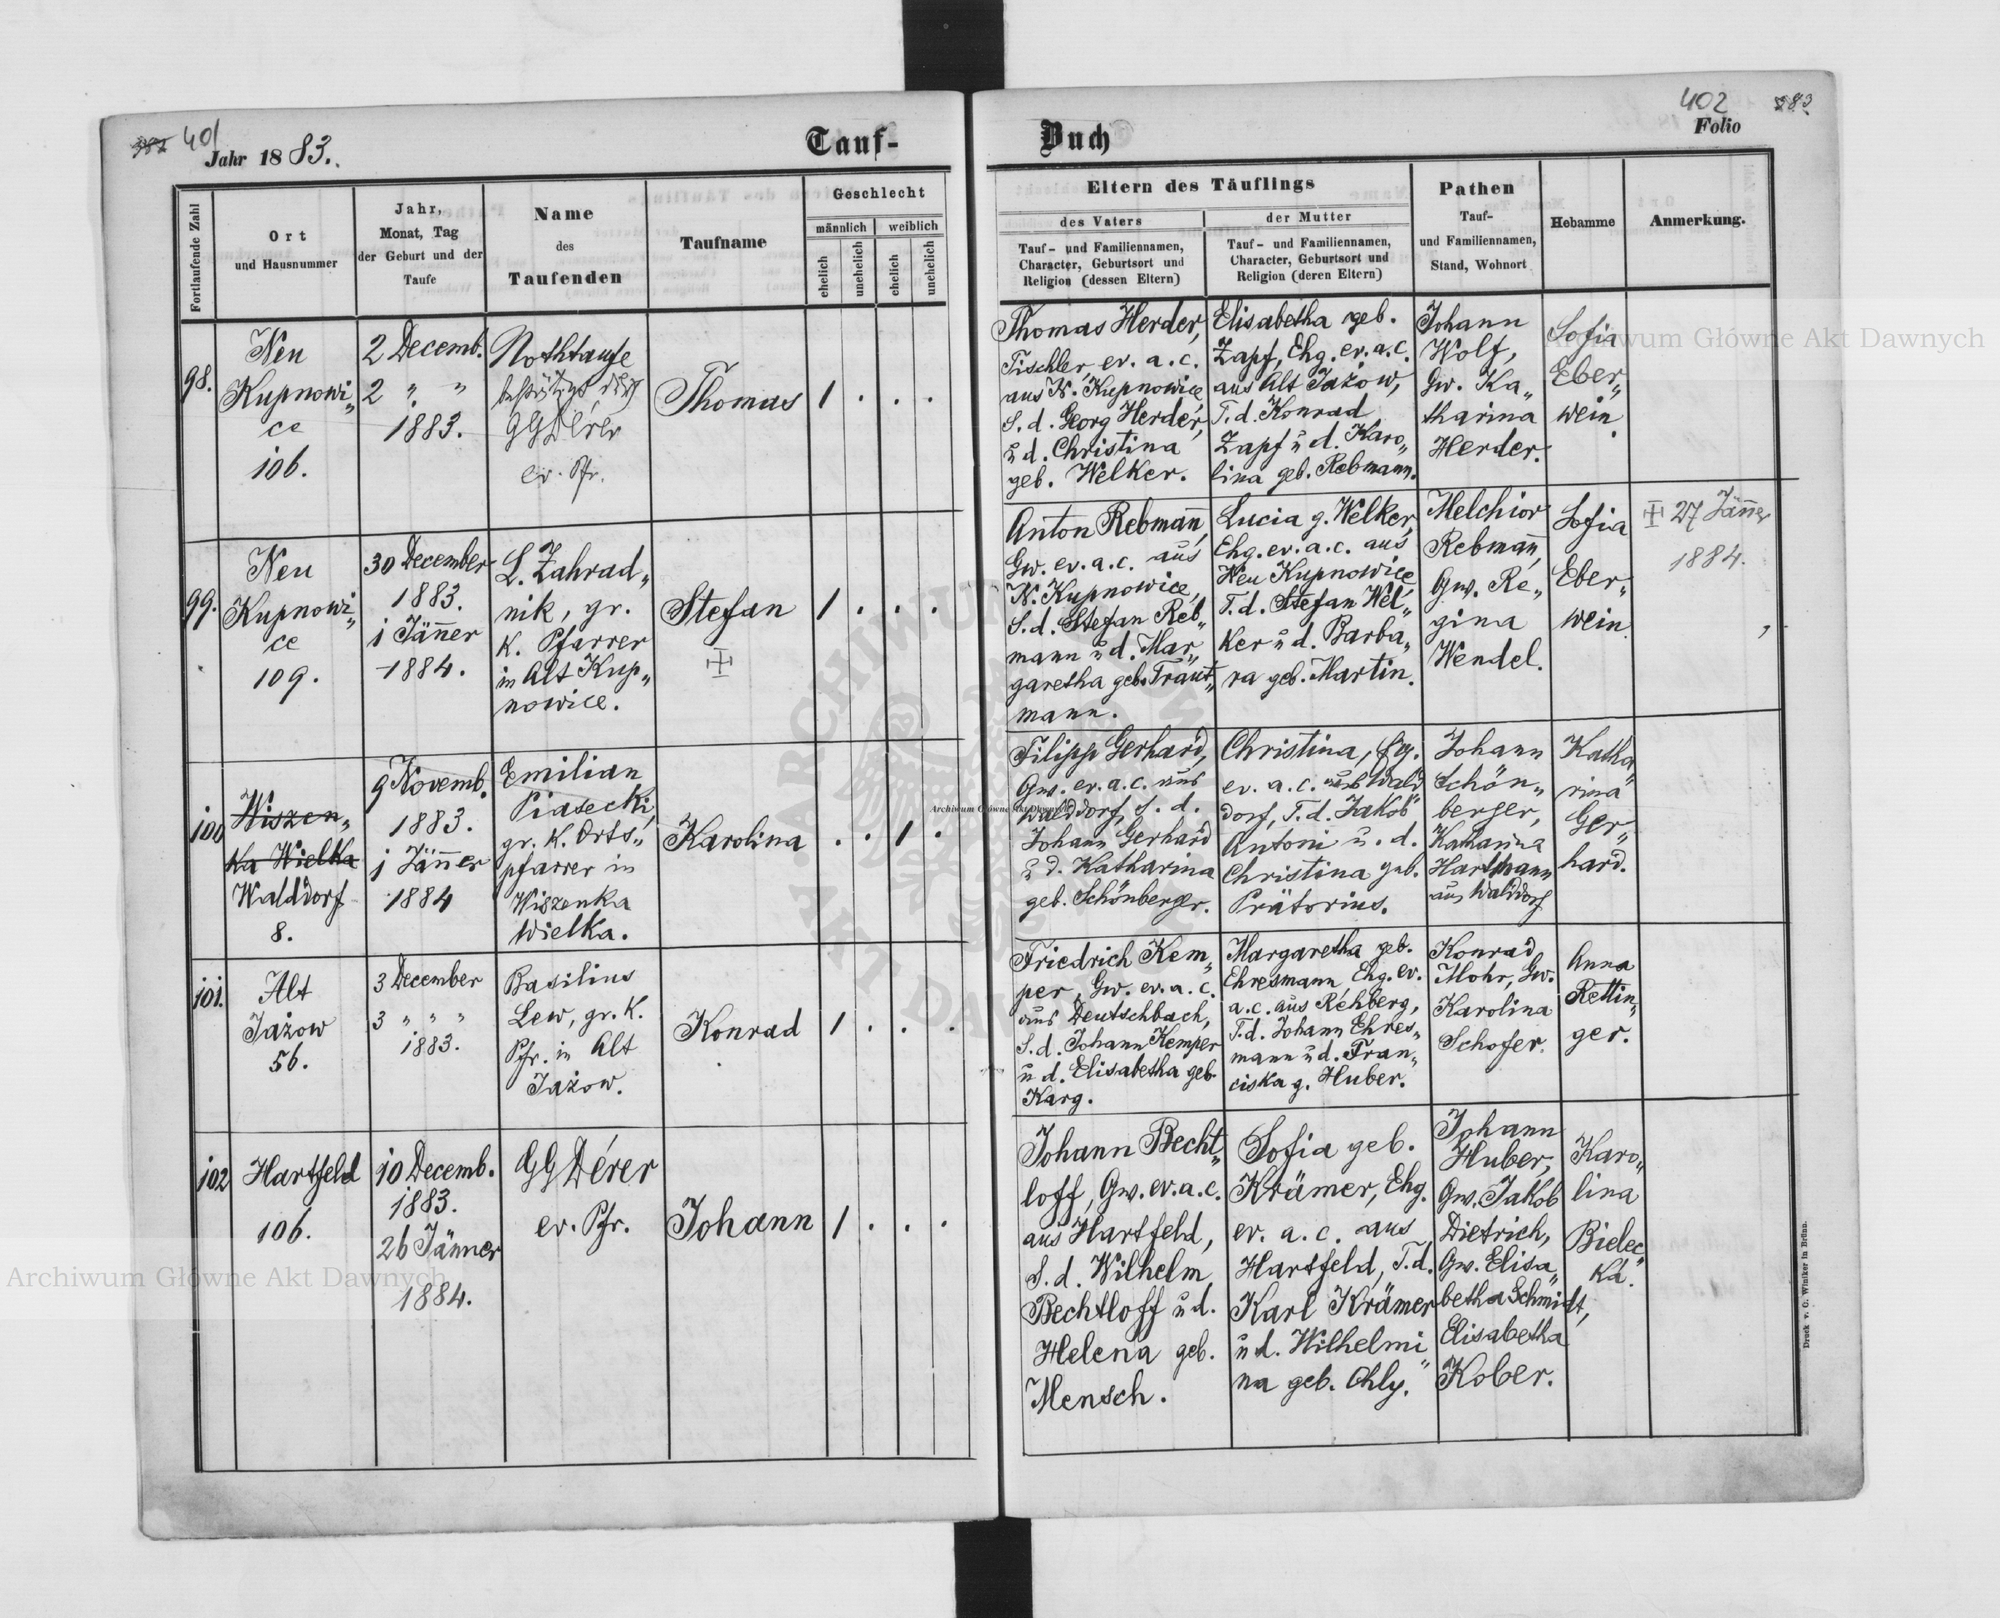 401
Jahr 1883.
Tauf-
Buch
402
383
Folio
Fortlaufende Zahl
Ort
und Hausnummer
Jahr,
Monat, Tag
der Geburt und der
Taufe
Name
des
Taufenden
Taufname
Geschlecht
männlich
weiblich
ehelich
unehelich
ehelich
unehelich
Eltern des Täuflings
des Vaters
Tauf- und Familiennamen,
Character, Geburtsort und
Religion (dessen Eltern)
der Mutter
Tauf- und Familiennamen,
Character, Geburtsort und
Religion (deren Eltern)
Pathen
Tauf-
und Familiennamen,
Stand, Wohnort
Hebamme
Anmerkung.
98.
Neu
Kupnowi„
ce
106.
2 Decemb.
2 „ „
1883.
Nothtaufe
bestätigt
GGDérer
ev. Pfr.
Thomas
1 . . .
Thomas Herder,
Tischler, ev. a. c.
aus N. Kupnowice
S. d. Georg Herder,
u d. Christina
geb. Welker.
Elisabetha geb.
Zapf, Ehg. ev. a. c.
aus Alt Jażow,
T. d. Konrad
Zapf u d. Karo„
lina geb. Rebmann.
Johann
Wolf,
Gw. Ka„
tharina
Herder.
Sofia
Eber„
wein.
99.
Neu
Kupnowi„
ce
109.
30 December
1883.
1 Jänner
1884.
L. Zahrad„
nik, gr.
k. Pfarrer
in Alt Kup„
nowice.
Stefan
1 . . .
Anton Rebmann,
Gw. ev. a. c. aus
N. Kupnowice,
S. d. Stefan Reb„
mann u d. Mar„
garetha geb. Traut„
mann.
Lucia g. Welker,
Ehg. ev. a. c. aus
Neu Kupnowice
T. d. Stefan Wel„
ker u d. Barba„
ra geb. Martin.
Melchior
Rebmann,
Gw. Re„
gina
Wendel.
Sofia
Eber„
wein.
27 Jänner
1884.
100
Wiszen„
ka Wielka
Walddorf
8.
9 Novemb.
1883.
1 Jänner
1884
Emilian
Piasecki,
gr. k. Orts„
pfarrer in
Wiszenka
Wielka.
Karolina
. . 1 .
Filipp Gerhard,
Gw. ev. a. c. aus
Walddorf, S. d.
Johann Gerhard
u d. Katharina
geb. Schönberger.
Christina, Ehg.
ev. a. c. aus Wald
dorf, T. d. Jakob
Antoni u. d.
Christina geb.
Prätorius.
Johann
Schön„
berger,
Katharina
Hartmann
aus Walddorf
Katha„
rina
Ger„
hard.
101.
Alt
Jażow
56.
3 December
3 „ „ „
1883.
Basilius
Lew, gr. k.
Pfr. in Alt
Jażow.
Konrad
1 . . .
Friedrich Kem„
per, Gw. ev. a. c.
aus Deutschbach,
S. d. Johann Kemper
u d. Elisabetha geb.
Karg.
Margaretha geb.
Ehresmann, Ehg. ev.
a. c. aus Rehberg,
T. d. Johann Ehres„
mann u d. Fran„
ciska g. Huber.
Konrad
Mohr, Gw.
Karolina
Schofer.
Anna
Rettin„
ger.
102
Hartfeld
106.
10 Decemb.
1883.
26 Jänner
1884.
GGDérer
ev. Pfr.
Johann
1 . . .
Johann Becht„
loff, Gw. ev. a. c.
aus Hartfeld,
S. d. Wilhelm
Bechtloff u d.
Helena geb.
Mensch.
Sofia geb.
Krämer, Ehg.
ev. a. c. aus
Hartfeld, T. d.
Karl Krämer
u d. Wilhelmi„
na geb. Ohly.
Johann
Huber,
Gw. Jakob
Dietrich,
Gw. Elisa„
betha Schmidt,
Elisabetha
Kober.
Karo„
lina
Bielec„
ka.
Druck v. C. Winiker in Brünn.
Archiwum Główne Akt Dawnych
Archiwum Główne Akt Dawnych
Archiwum Główne Akt Dawnych